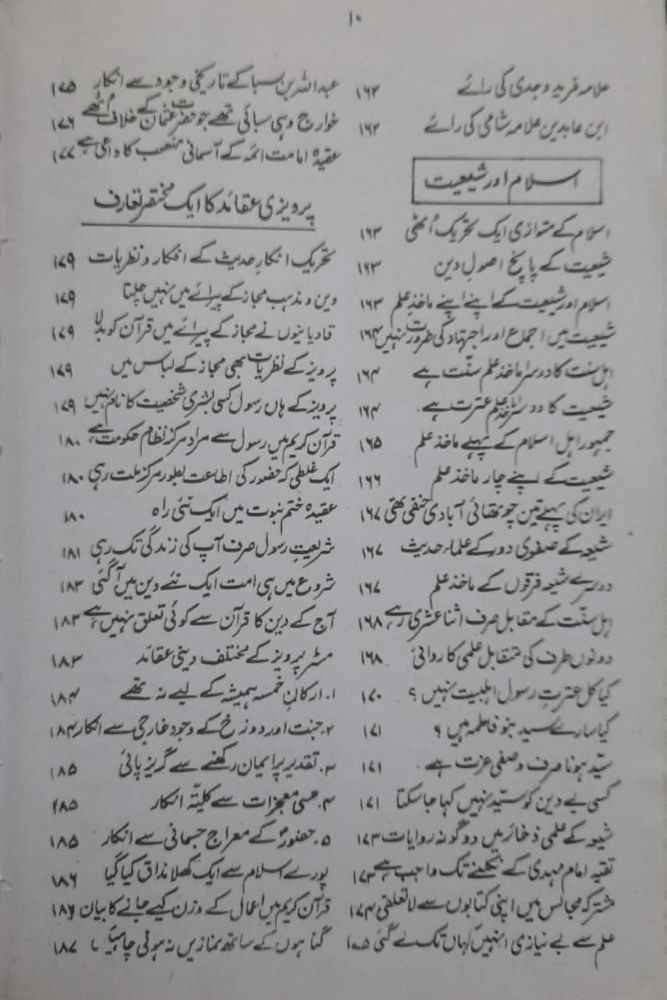 ۱۰
علامہ فرید وجدی کی رائے ۱۶۲
ابن عابدین علامہ شامی کی رائے ۱۶۲
اسلام اور شیعیت
اسلام کے متوازی ایک تحریک اُٹھی ۱۶۳
شیعیت کے پانچ اصول دین ۱۶۳
اسلام اور شیعیت کے اپنے اپنے ماخذِ علم ۱۶۳
شیعیت میں اجماع اور اجتہاد کی ضرورت نہیں ۱۶۴
اہل سنت کا دوسرا ماخذ علم سنّت ہے ۱۶۴
شیعیت کا دوسرا ماخذ علم عترت ہے ۱۶۴
جمہور اہل اسلام کے پہلے ماخذ علم ۱۶۵
شیعیت کے اپنے چار ماخذ علم ۱۶۶
ایران کی پہلے تین چوتھائی آبادی حنفی تھی ۱۶۷
شیعہ کے صفوی دور کے علماء حدیث ۱۶۷
دوسرے شیعہ فرقوں کے ماخذ علم ۱۶۷
اہل سنّت کے مقابل صرف اثنا عشری رہے ۱۶۸
دونوں طرف کی متقابل علمی کاروائی ۱۶۸
کیا کل عترتِ رسول اہلبیت نہیں؟ ۱۷۰
کیا سارے سید بنو فاطمہ ہیں؟ ۱۷۱
سیّد ہونا صرف وصفی عزت ہے ۱۷۱
کسی بے دین کو سیّد نہیں کہا جا سکتا ۱۷۱
شیعہ کے علمی ذخائر میں دوگونہ روایات ۱۷۳
تقیہ امام مہدی کے نکلنے تک واجب ہے ۱۷۳
مشترکہ مجالس میں اپنی کتابوں سے لاتعلقی ۱۷۴
علم سے بے نیازی انہیں کہاں تک لے گئی ۱۷۵
عبداللہ بن سبا کے تاریخی وجود سے انکار ۱۷۵
خوارج وہی سبائی تھے جو حضرت عثمان کے خلاف اُٹھے ۱۷۶
عقیدہ امامت ائمہ کے آسمانی منصب کا داعی ہے ۱۷۷
پرویزی عقائد کا ایک مختصر تعارف
تحریک انکارِ حدیث کے افکار و نظریات ۱۷۹
دین و مذہب مجاز کے پیرائے میں نہیں چلتا ۱۷۹
قادیانیوں نے مجاز کے پیرائے میں قرآن کو بدلا ۱۷۹
پرویز کے نظریات بھی مجاز کے لباس میں ۱۷۹
پرویز کے ہاں رسول کسی بشری شخصیت کا نام نہیں ۱۷۹
قرآن کریم میں رسول سے مراد مرکز نظام حکومت ہے ۱۸۰
ایک غلطی کہ حضور کی اطاعت بطور مرکز ملت رہی ۱۸۰
عقیدہ ختم نبوت میں ایک نئی راہ ۱۸۰
شریعتِ رسول صرف آپ کی زندگی تک رہی ۱۸۱
شروع میں ہی امت ایک نئے دین میں آ گئی ۱۸۳
آج کے دین کا قرآن سے کوئی تعلق نہیں ہے ۱۸۳
مسٹر پرویز کے مختلف دینی عقائد ۱۸۳
۱۔ ارکانِ خمسہ ہمیشہ کے لیے نہ تھے ۱۸۴
۲۔ جنت اور دوزخ کے وجود خارجی سے انکار ۱۸۴
۳۔ تقدیر پر ایمان رکھنے سے گریز پائی ۱۸۵
۴۔ حسی معجزات سے کلیتہً انکار ۱۸۵
۵۔ حضورؐ کے معراج جسمانی سے انکار ۱۸۵
پورے اسلام سے ایک کھلا مذاق کیا گیا ۱۸۶
قرآن کریم میں اعمال کے وزن کیے جانے کا بیان ۱۸۶
گناہوں کے ساتھ نمازیں نہ ہونی چاہئیں ۱۸۷